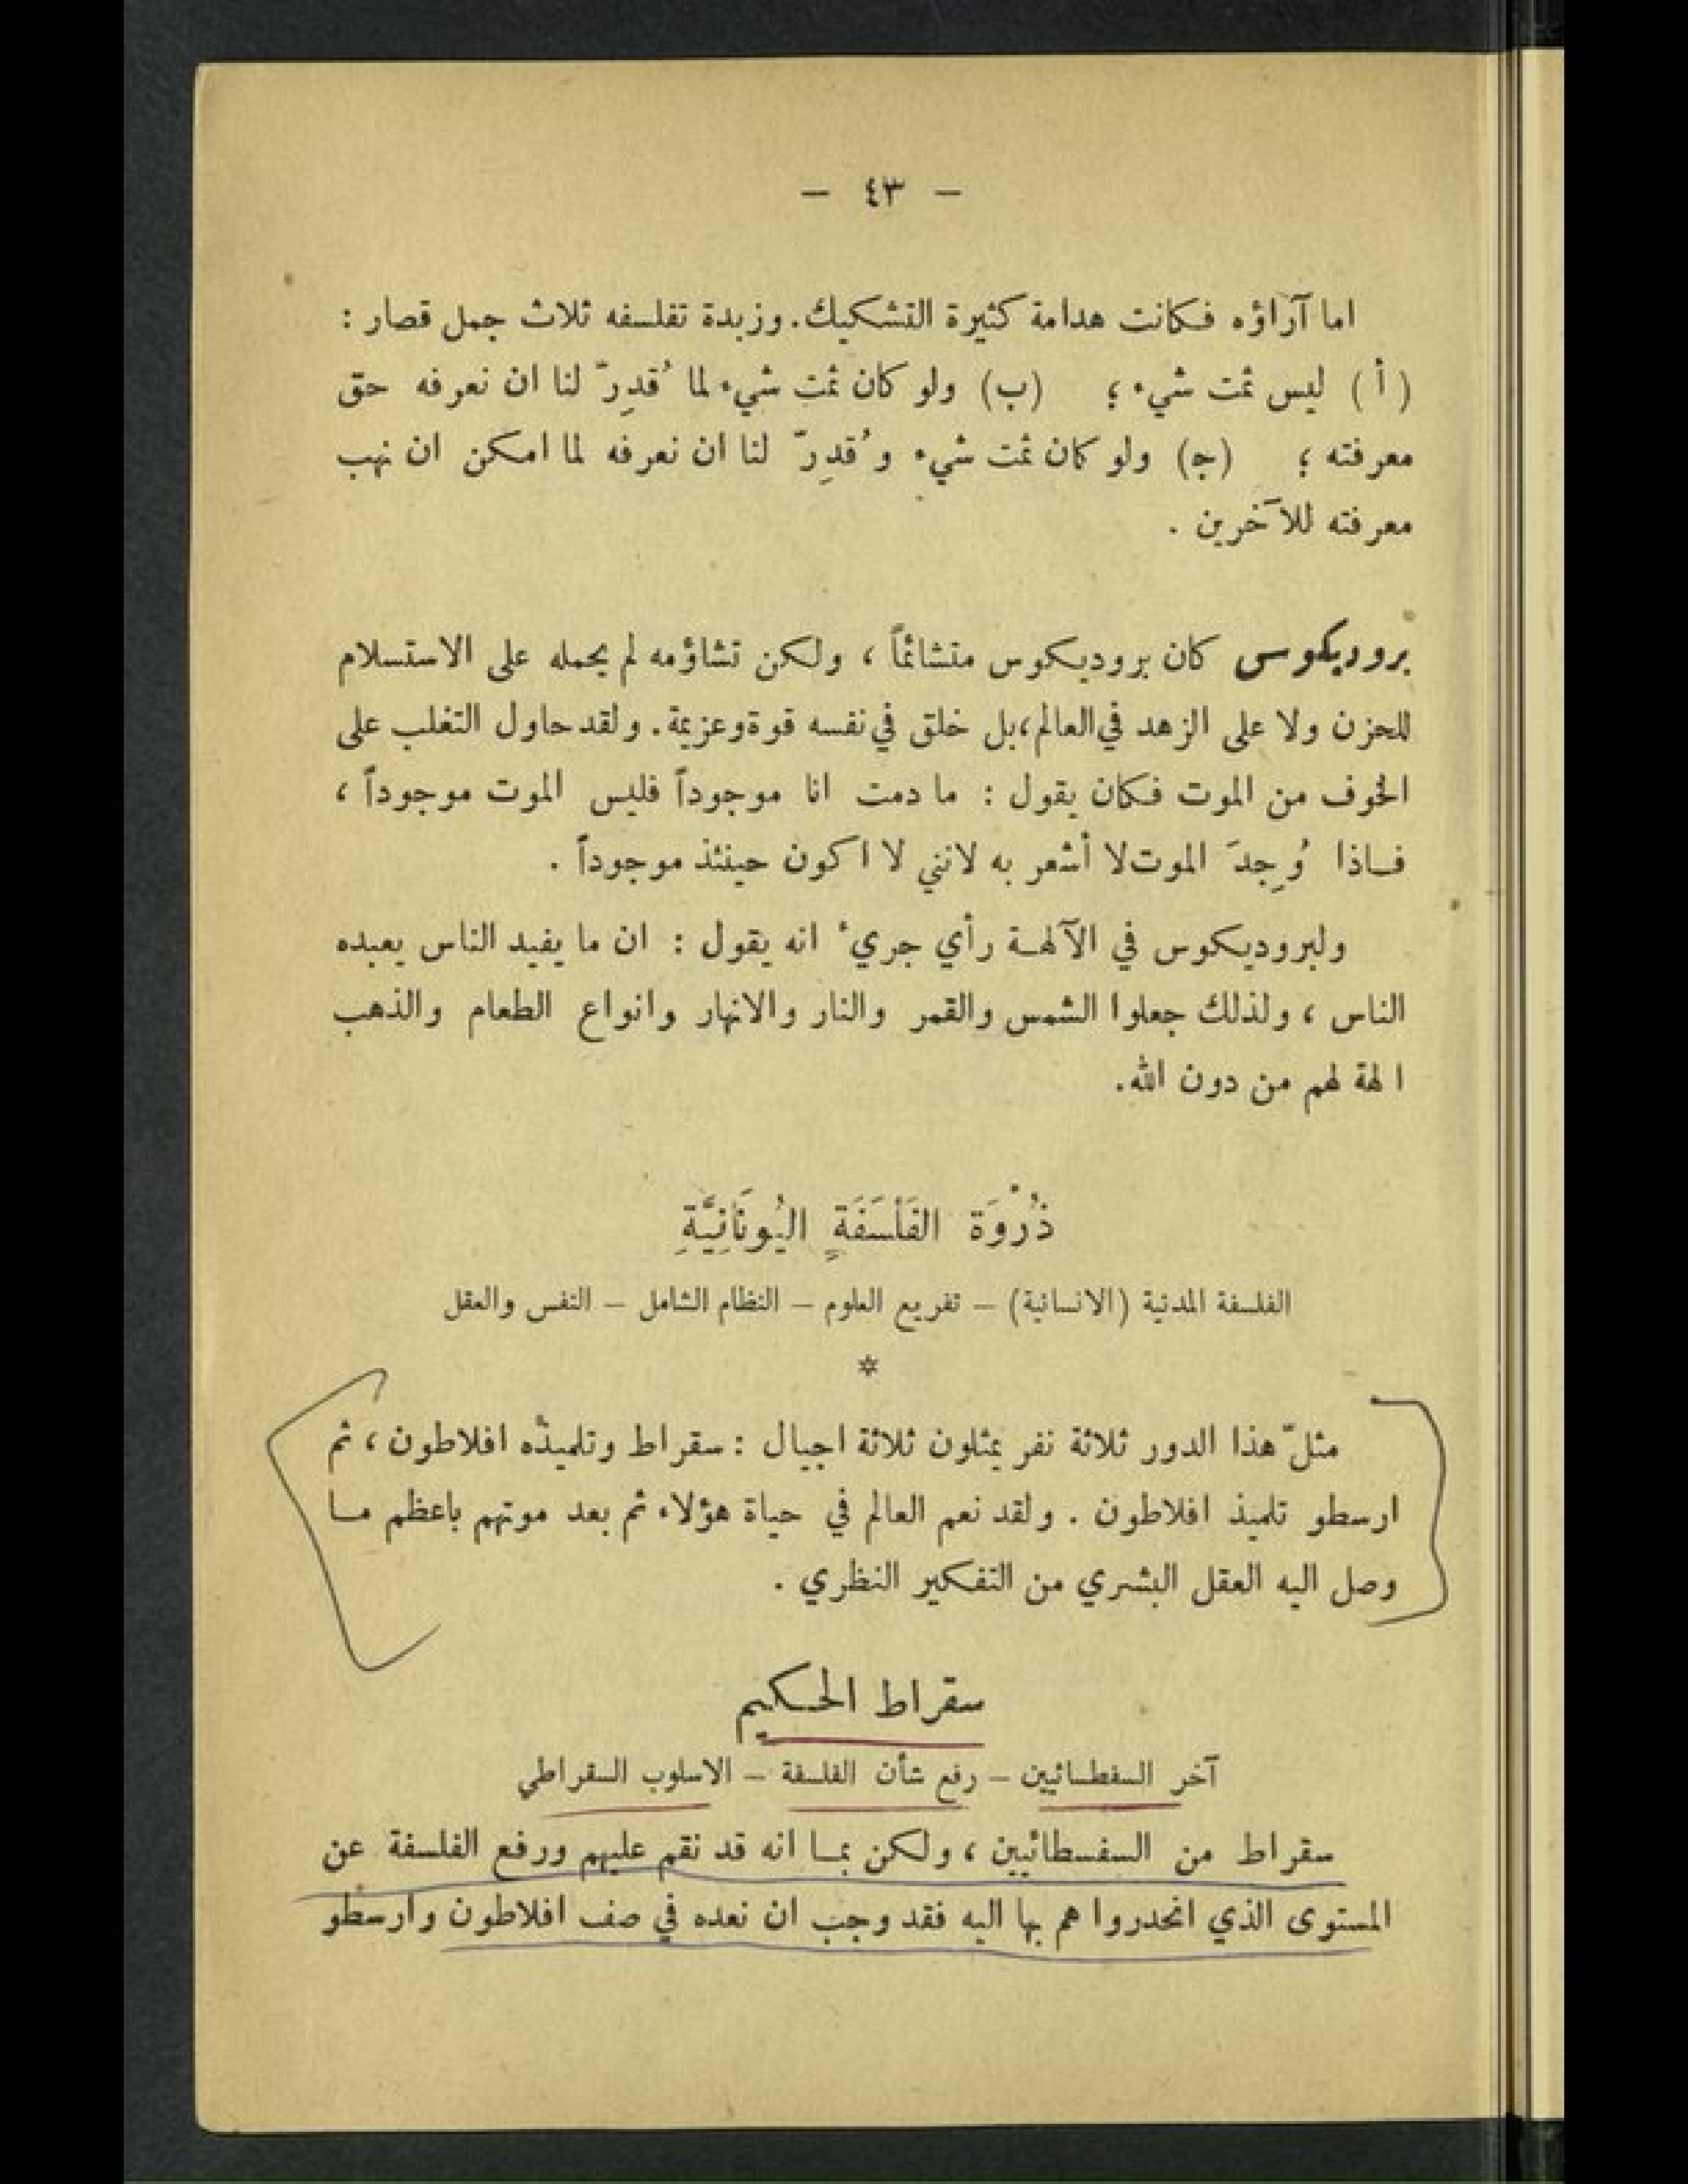 — ٤٣ —
اما آراؤه فكانت هدامة كثيرة التشكيك. وزبدة تفلسفه ثلاث جمل قصار :
(أ) ليس ثمت شيء ؛ (ب) ولو كان ثمت شيء لما قُدِرّ لنا ان نعرفه حق
معرفته ؛ (ج) ولو كان ثمت شيء وقُدِرّ لنا ان نعرفه لما امكن ان نهب
معرفته للآخرين .
بروديكوس كان بروديكوس متشائماً ، ولكن تشاؤمه لم يحمله على الاستسلام
للحزن ولا على الزهد في العالم، بل خلق في نفسه قوة وعزيمة. ولقد حاول التغلب على
الخوف من الموت فكان يقول : ما دمت انا موجوداً فليس الموت موجوداً ،
فاذا وُجِدَ الموت لا أشعر به لانني لا اكون حينئذ موجوداً .
ولبروديكوس في الآلهة رأي جريء انه يقول : ان ما يفيد الناس يعبده
الناس ، ولذلك جعلوا الشمس والقمر والنار والانهار وانواع الطعام والذهب
الهة لهم من دون الله.
ذُرْوَة الفَلْسَفَةِ اليُونَانِيَّةِ
الفلسفة المدنية (الانسانية) – تفريع العلوم – النظام الشامل – النفس والعقل
*
مثلّ هذا الدور ثلاثة نفر يمثلون ثلاثة اجيال : سقراط وتلميذه افلاطون ، ثم
ارسطو تلميذ افلاطون . ولقد نعم العالم في حياة هؤلاء ثم بعد موتهم باعظم ما
وصل اليه العقل البشري من التفكير النظري .
سقراط الحكيم
آخر السفطائيين – رفع شأن الفلسفة – الاسلوب السقراطي
سقراط من السفسطائيين ، ولكن بما انه قد نقم عليهم ورفع الفلسفة عن
المستوى الذي انحدروا هم بها اليه فقد وجب ان نعده في صف افلاطون وارسطو